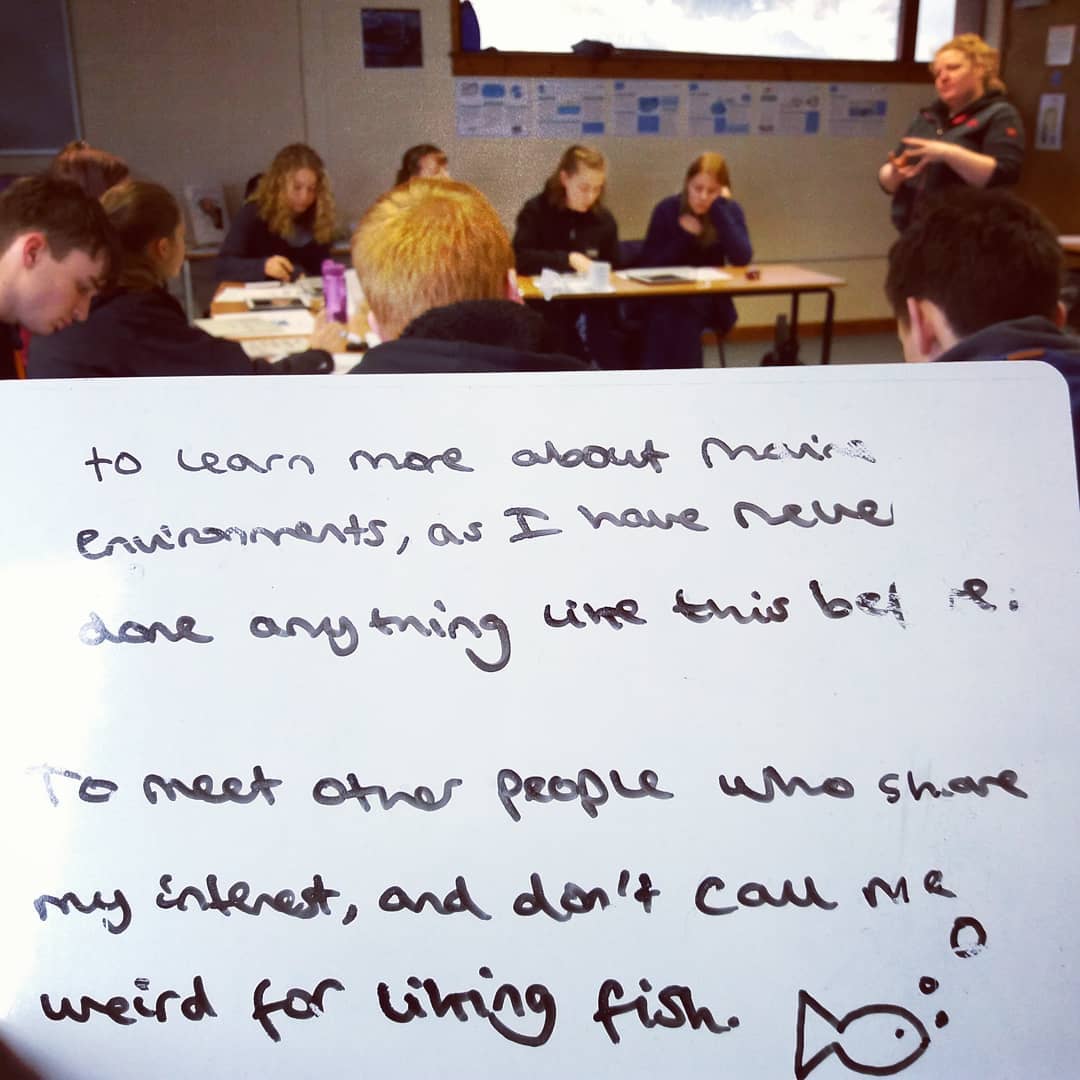 to learn more about Marine
environments, as I have never
done anything like this before.
To meet other people who share
my interest, and don't call me
weird for liking fish.